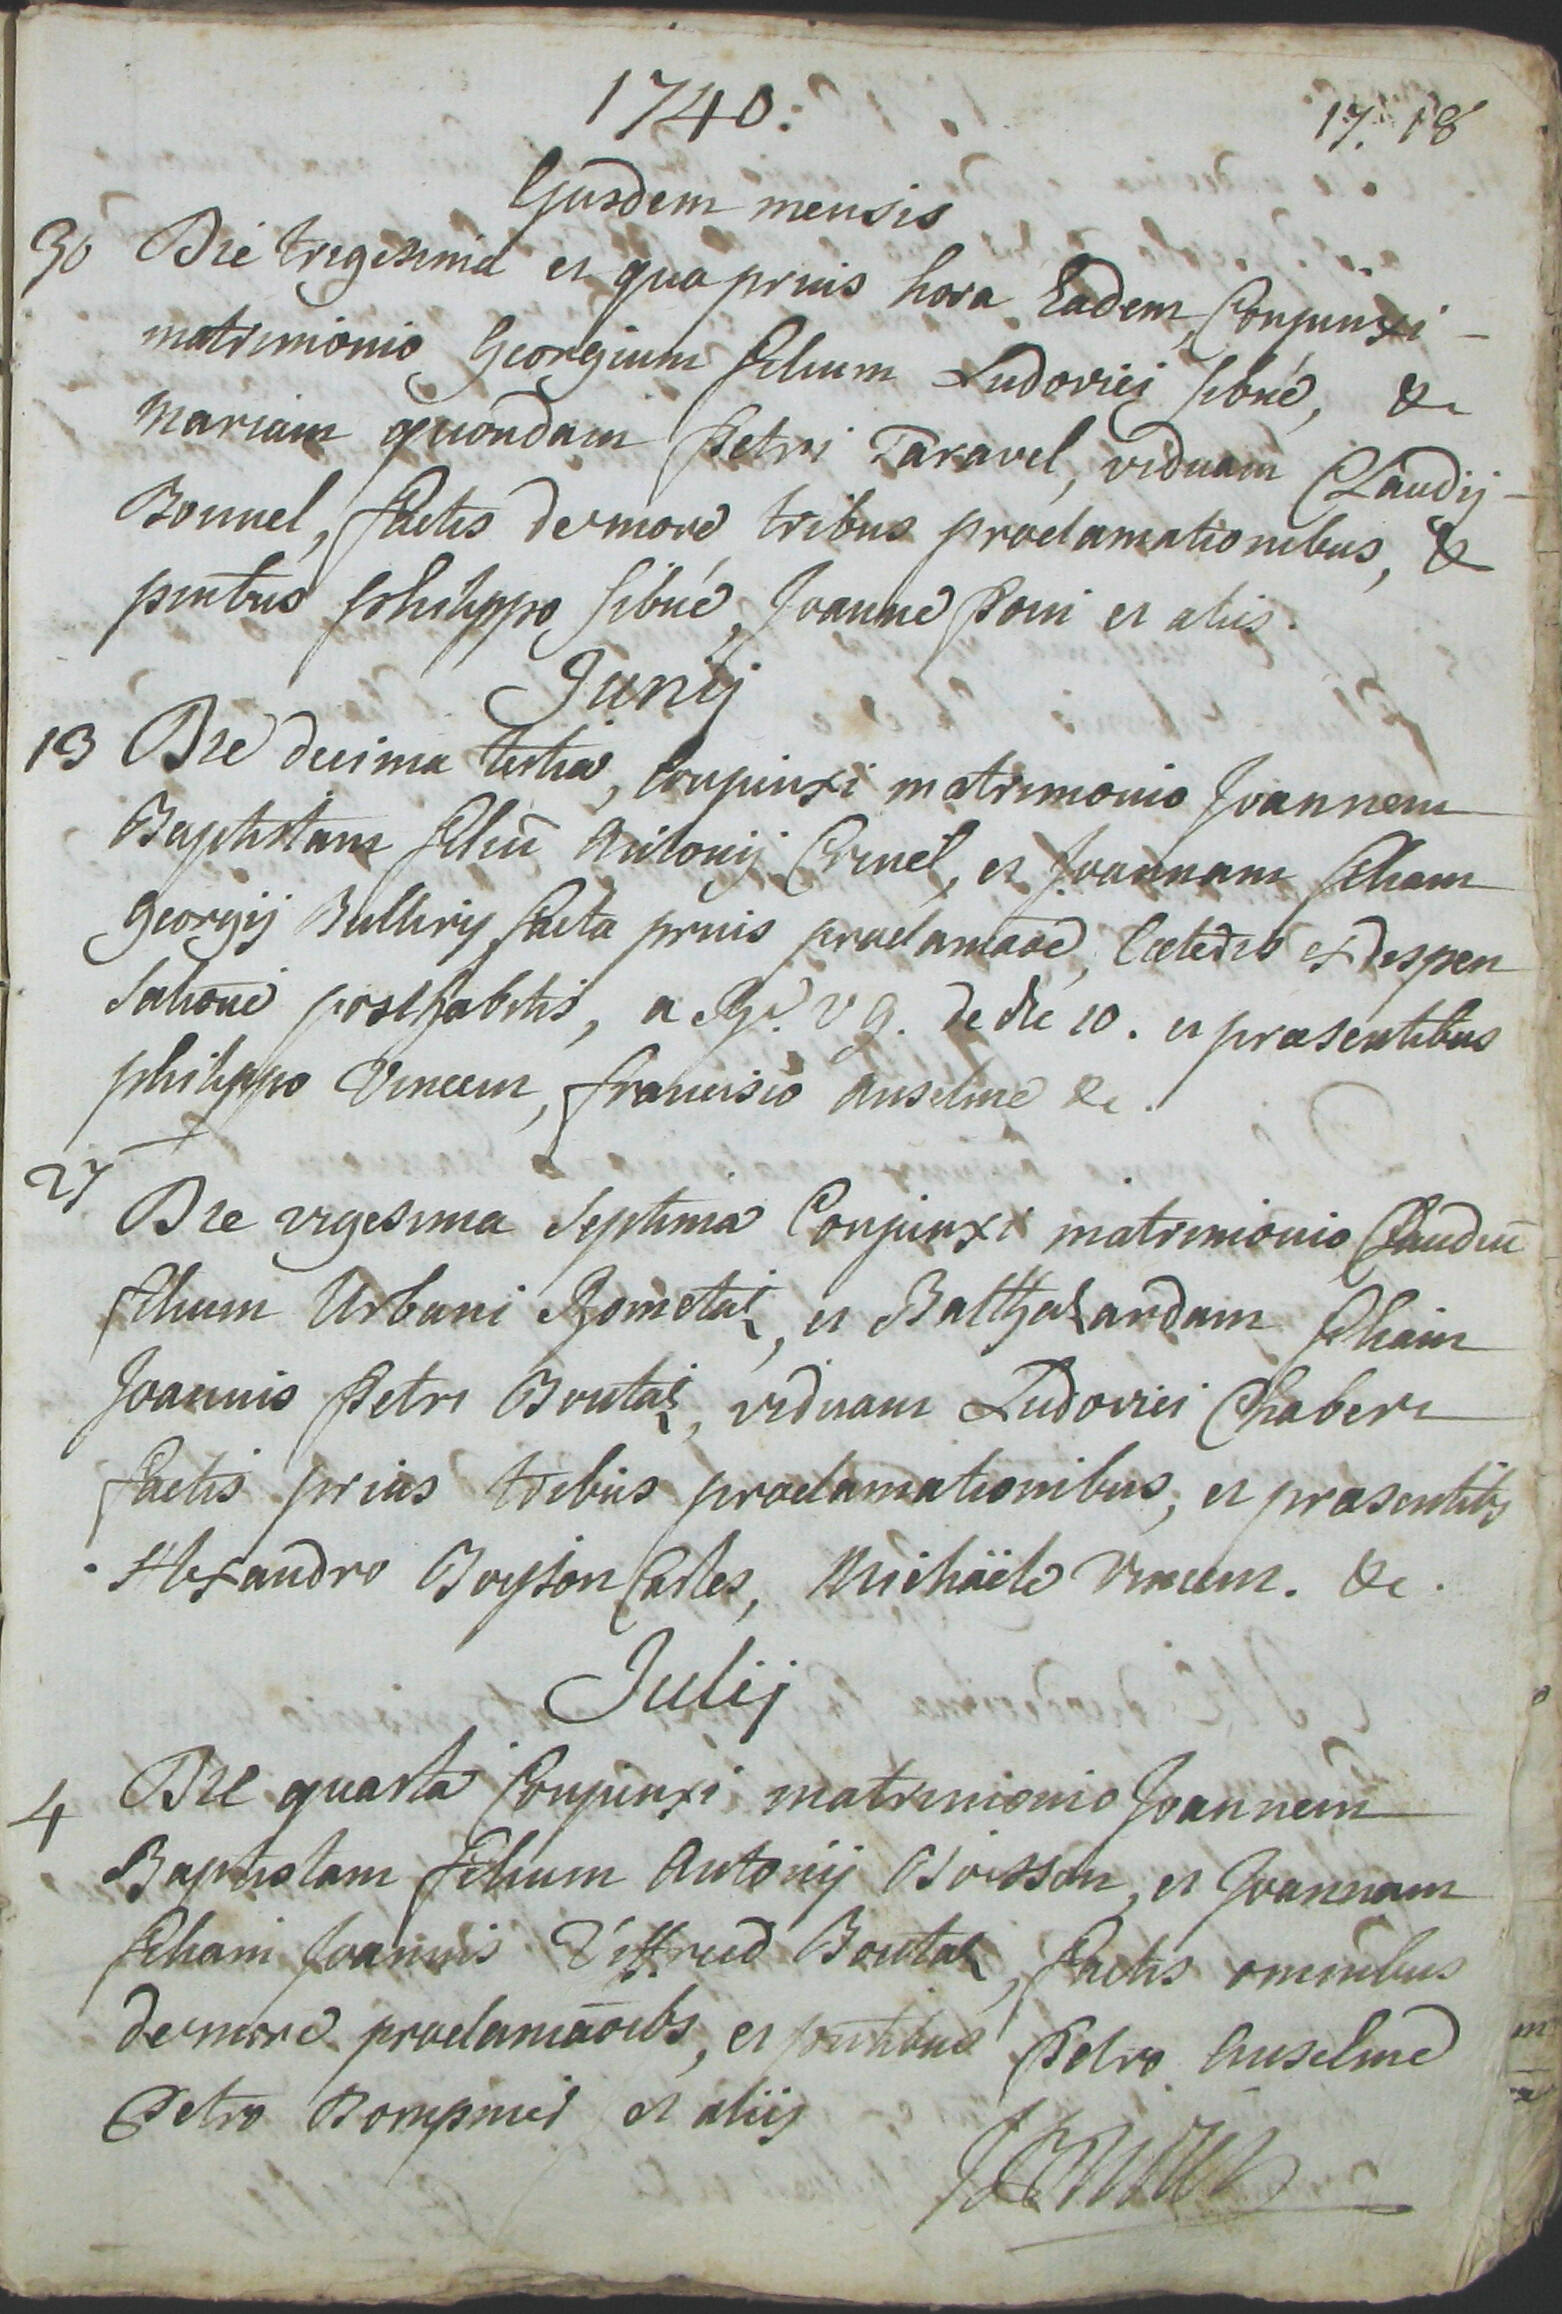 1740:
17. 18
Ejusdem mensis
30 Die trigesima et qua prius hora Eadem, Conjunxi
matrimonio Georgium filium Ludovici sibué, &
Mariam quondam Petri Taravel, viduam Claudij
Bonnel, factis de more tribus proclamationibus, &
pntibus philippo sibué, Joanne Poni et aliis.
Junij
13 Die decima tertia, Conjunxi matrimonio Joannem
Baptistam filiū Antonij Crinel, et Joannam filiam
Georgij Bulliry facta prius proclamaōe, Ceteris ex dispen
satione posthabitis, a Rx. v g. de die 10. et praesentibus
philippo Vincem, francisco Anselme &c.
27
Die vigesima Septima Conjunxi matrimonio Claudiū
filium Urbani Rometaz, et Balthazardam filiam
Joannis Petri Boutaz, viduam Ludovici Chaber
factis prius tribus proclamationibus, et praesentibs
Alexandro Boyson Carles, Michaële Vincem. &c.
Julij
4 Die quarta Conjunxi matrimonio Joannem
Baptistam filium Antonij Boisson, et Joannam
filiam Joannis Viffred Boutaz, factis omnibus
de more proclamaōibs, et pntibus Petro Anselme
Petro Rompnié et aliis